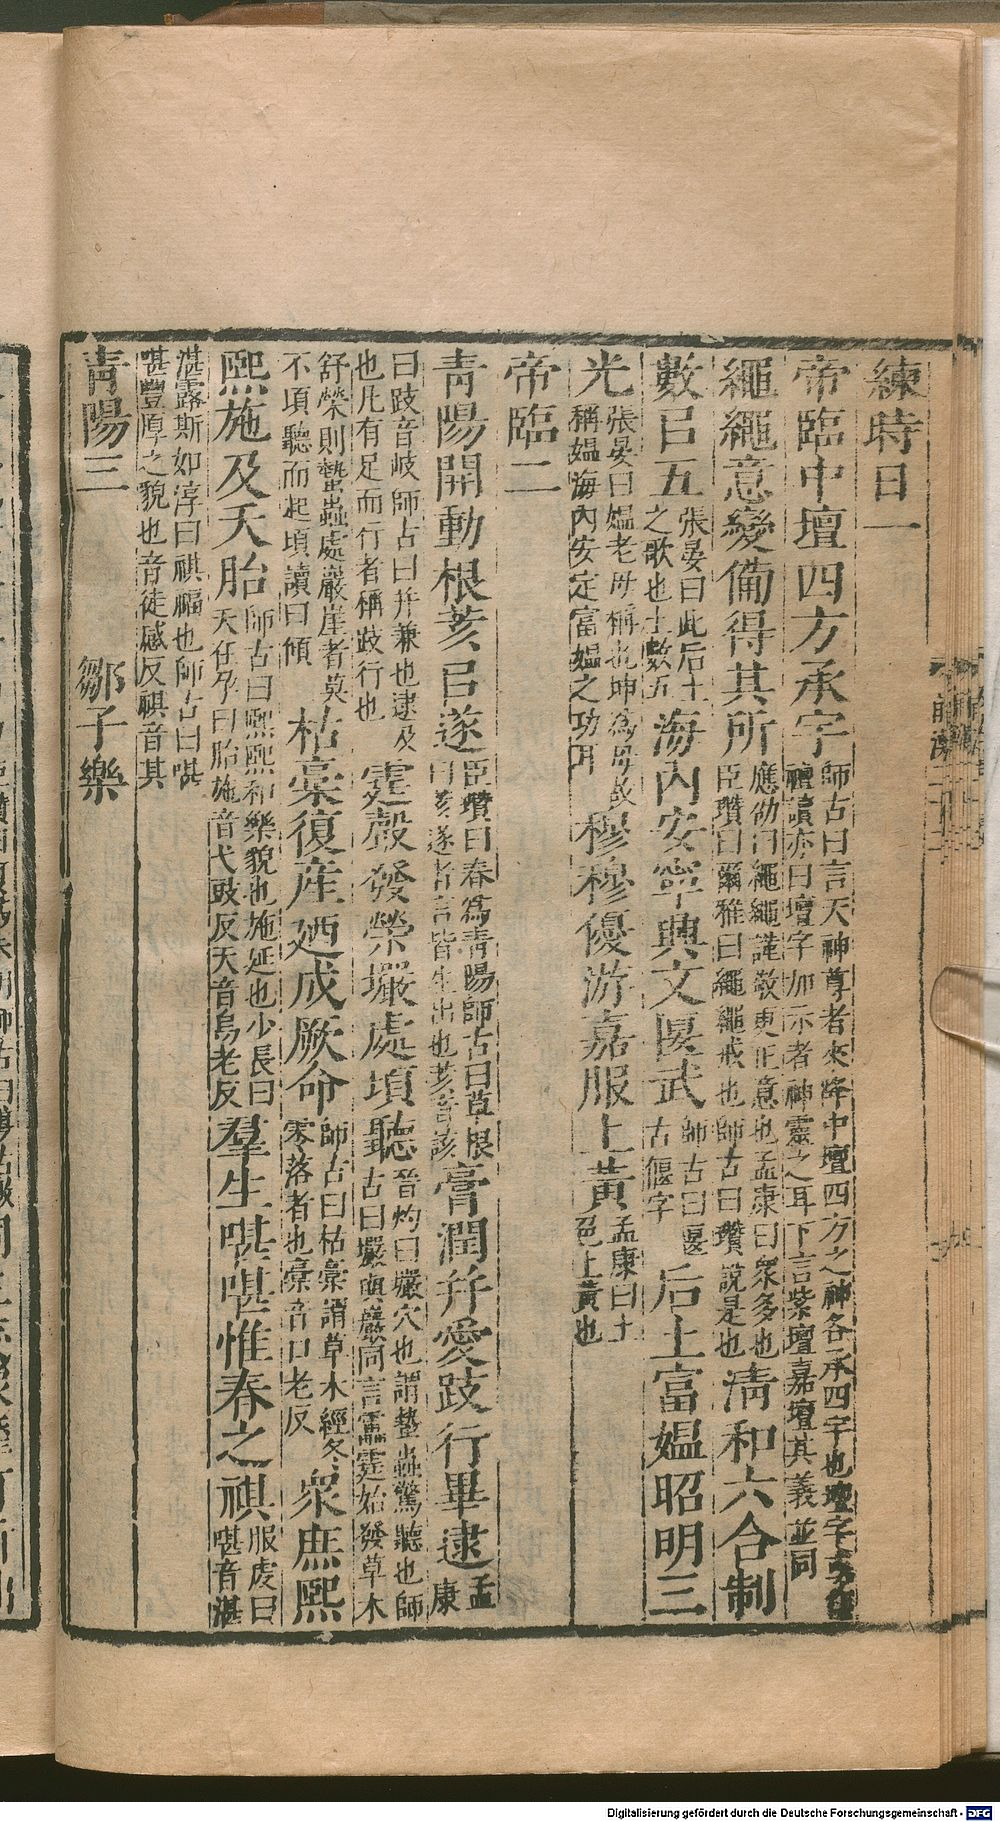 練時日一
帝臨中壇四方承宇師古曰言天神尊者來降中壇四方之神各承四宇也壇字
壇讀亦曰壇字加示者神靈之耳下言紫壇嘉壇其義並同
繩繩意變備得其所應劭曰繩繩謹敬更正意也孟康曰衆多也
臣瓚曰爾雅曰繩繩戒也師古曰瓚說是也清和六合制
數㠯五張晏曰此后土
之歌也土數五海內安寧興文匽武師古曰匽
古偃字后土富媼昭明三
光張晏曰媼老母稱也坤為母故
稱媼海內安定富媼之功耳穆穆優游嘉服上黃孟康曰土
色上黃也
帝臨二
青陽開動根荄㠯遂臣瓚曰春為青陽師古曰草根
曰荄遂者言皆生出也荄音該膏潤并愛跂行畢逮孟
康
曰跂音岐師古曰并兼也逮及
也凡有足而行者稱跂行也霆聲發榮壧處頃聽晉灼曰壧穴也謂蟄蟲驚聽也師
古曰壧與巖同言靁霆始發草木
舒榮則蟄蟲處巖崖者莫
不頃聽而起頃讀曰傾枯槀復產廼成厥命師古曰枯槀謂草木經冬
零落者也槀音口老反衆庶熙
熙施及夭胎師古曰熙熙和樂貌也施延也少長曰
夭在孕曰胎施音弋豉反夭音烏老反羣生啿啿惟春之祺服虔曰
啿音湛
湛露斯如淳曰祺福也師古曰啿
啿豐厚之貌也音徒感反祺音其
青陽三　鄒子樂
Digitalisierung gefördert durch die Deutsche Forschungsgemeinschaft - DFG